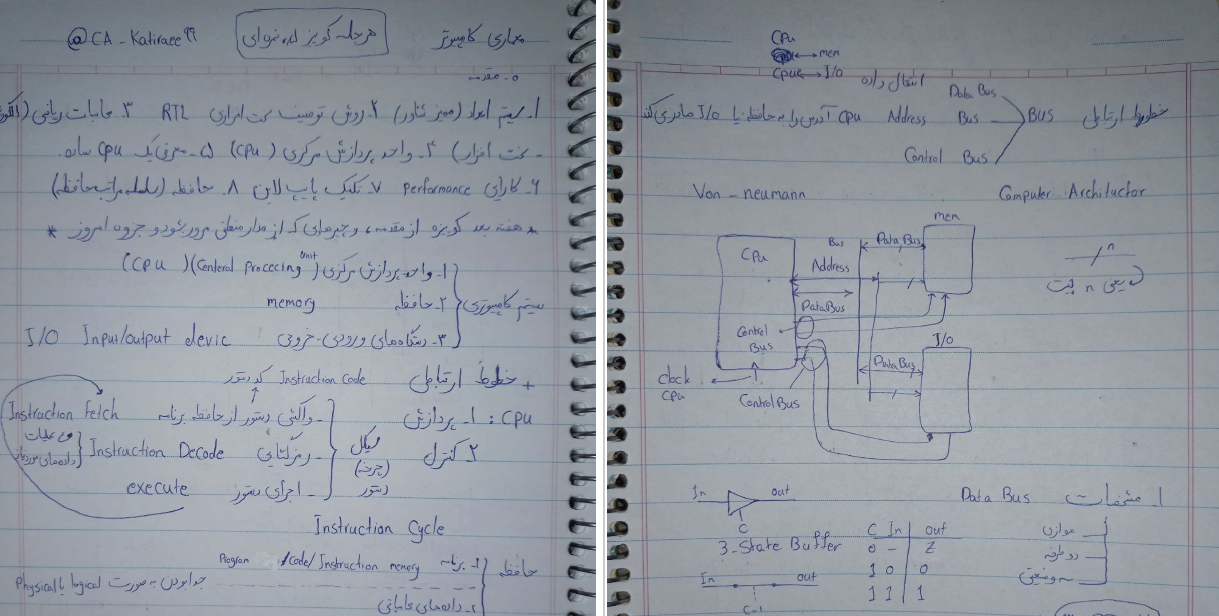 معماری کامپیوتر
@CA_Katiraee99
۰. مقدمه
۱. سیستم اعداد (ممیز شناور) ۲. روش توصیف سخت افزاری RTL ۳. محاسبات ریاضی
سخت افزار) ۴. واحد پردازش مرکزی (CPU) ۵- معرفی یک CPU ساده.
۶. کارایی performance ۷. تکنیک پایپ لاین ۸. حافظه (سلسله مراتب حافظه)
* هفته بعد کوییزه از مقدمه، و چیزهای که از مدار منطقی مرور میشود و جزوه امروز *
سیستم کامپیوتری
۱- واحد پردازش مرکزی (Centeral Proccecing Unit) (CPU)
۲- حافظه memory
۳- دستگاه‌های ورودی- خروجی I/O Input/output devic
+ خطوط ارتباطی
Instruction Code کد دستور
CPU: ۱- پردازش
۲ کنترل
سیکل (چرخه) دستور
- واکشی دستور از حافظه برنامه Instruction Fetch
- رمزگشایی Instruction Decode
نوع عملیات
- اجرای دستور execute
Instruction Cycle
حافظه
۱- برنامه Program /Code/ Instruction memory
جدا بودن به صورت logical یا Physical
۲- داده‌های عملیاتی
CPU
CPU ↔ mem
CPU ↔ I/O
انتقال داده
خطوط ارتباطی BUS
Data Bus
Address Bus
CPU آدرس را به حافظه یا I/O صادر می‌کند
Control Bus
Von - neumann
Computer Archituctor
CPU
Bus
Address
Data Bus
mem
Data Bus
Control Bus
clock CPU
Control Bus
I/O
Data Bus
n
یعنی n بیت
۱. مشخصات Data Bus
موازی
دو طرفه
سه وضعیتی
In out
C
3-State Buffer
C In out
0 - Z
1 0 0
1 1 1
In out
C=1